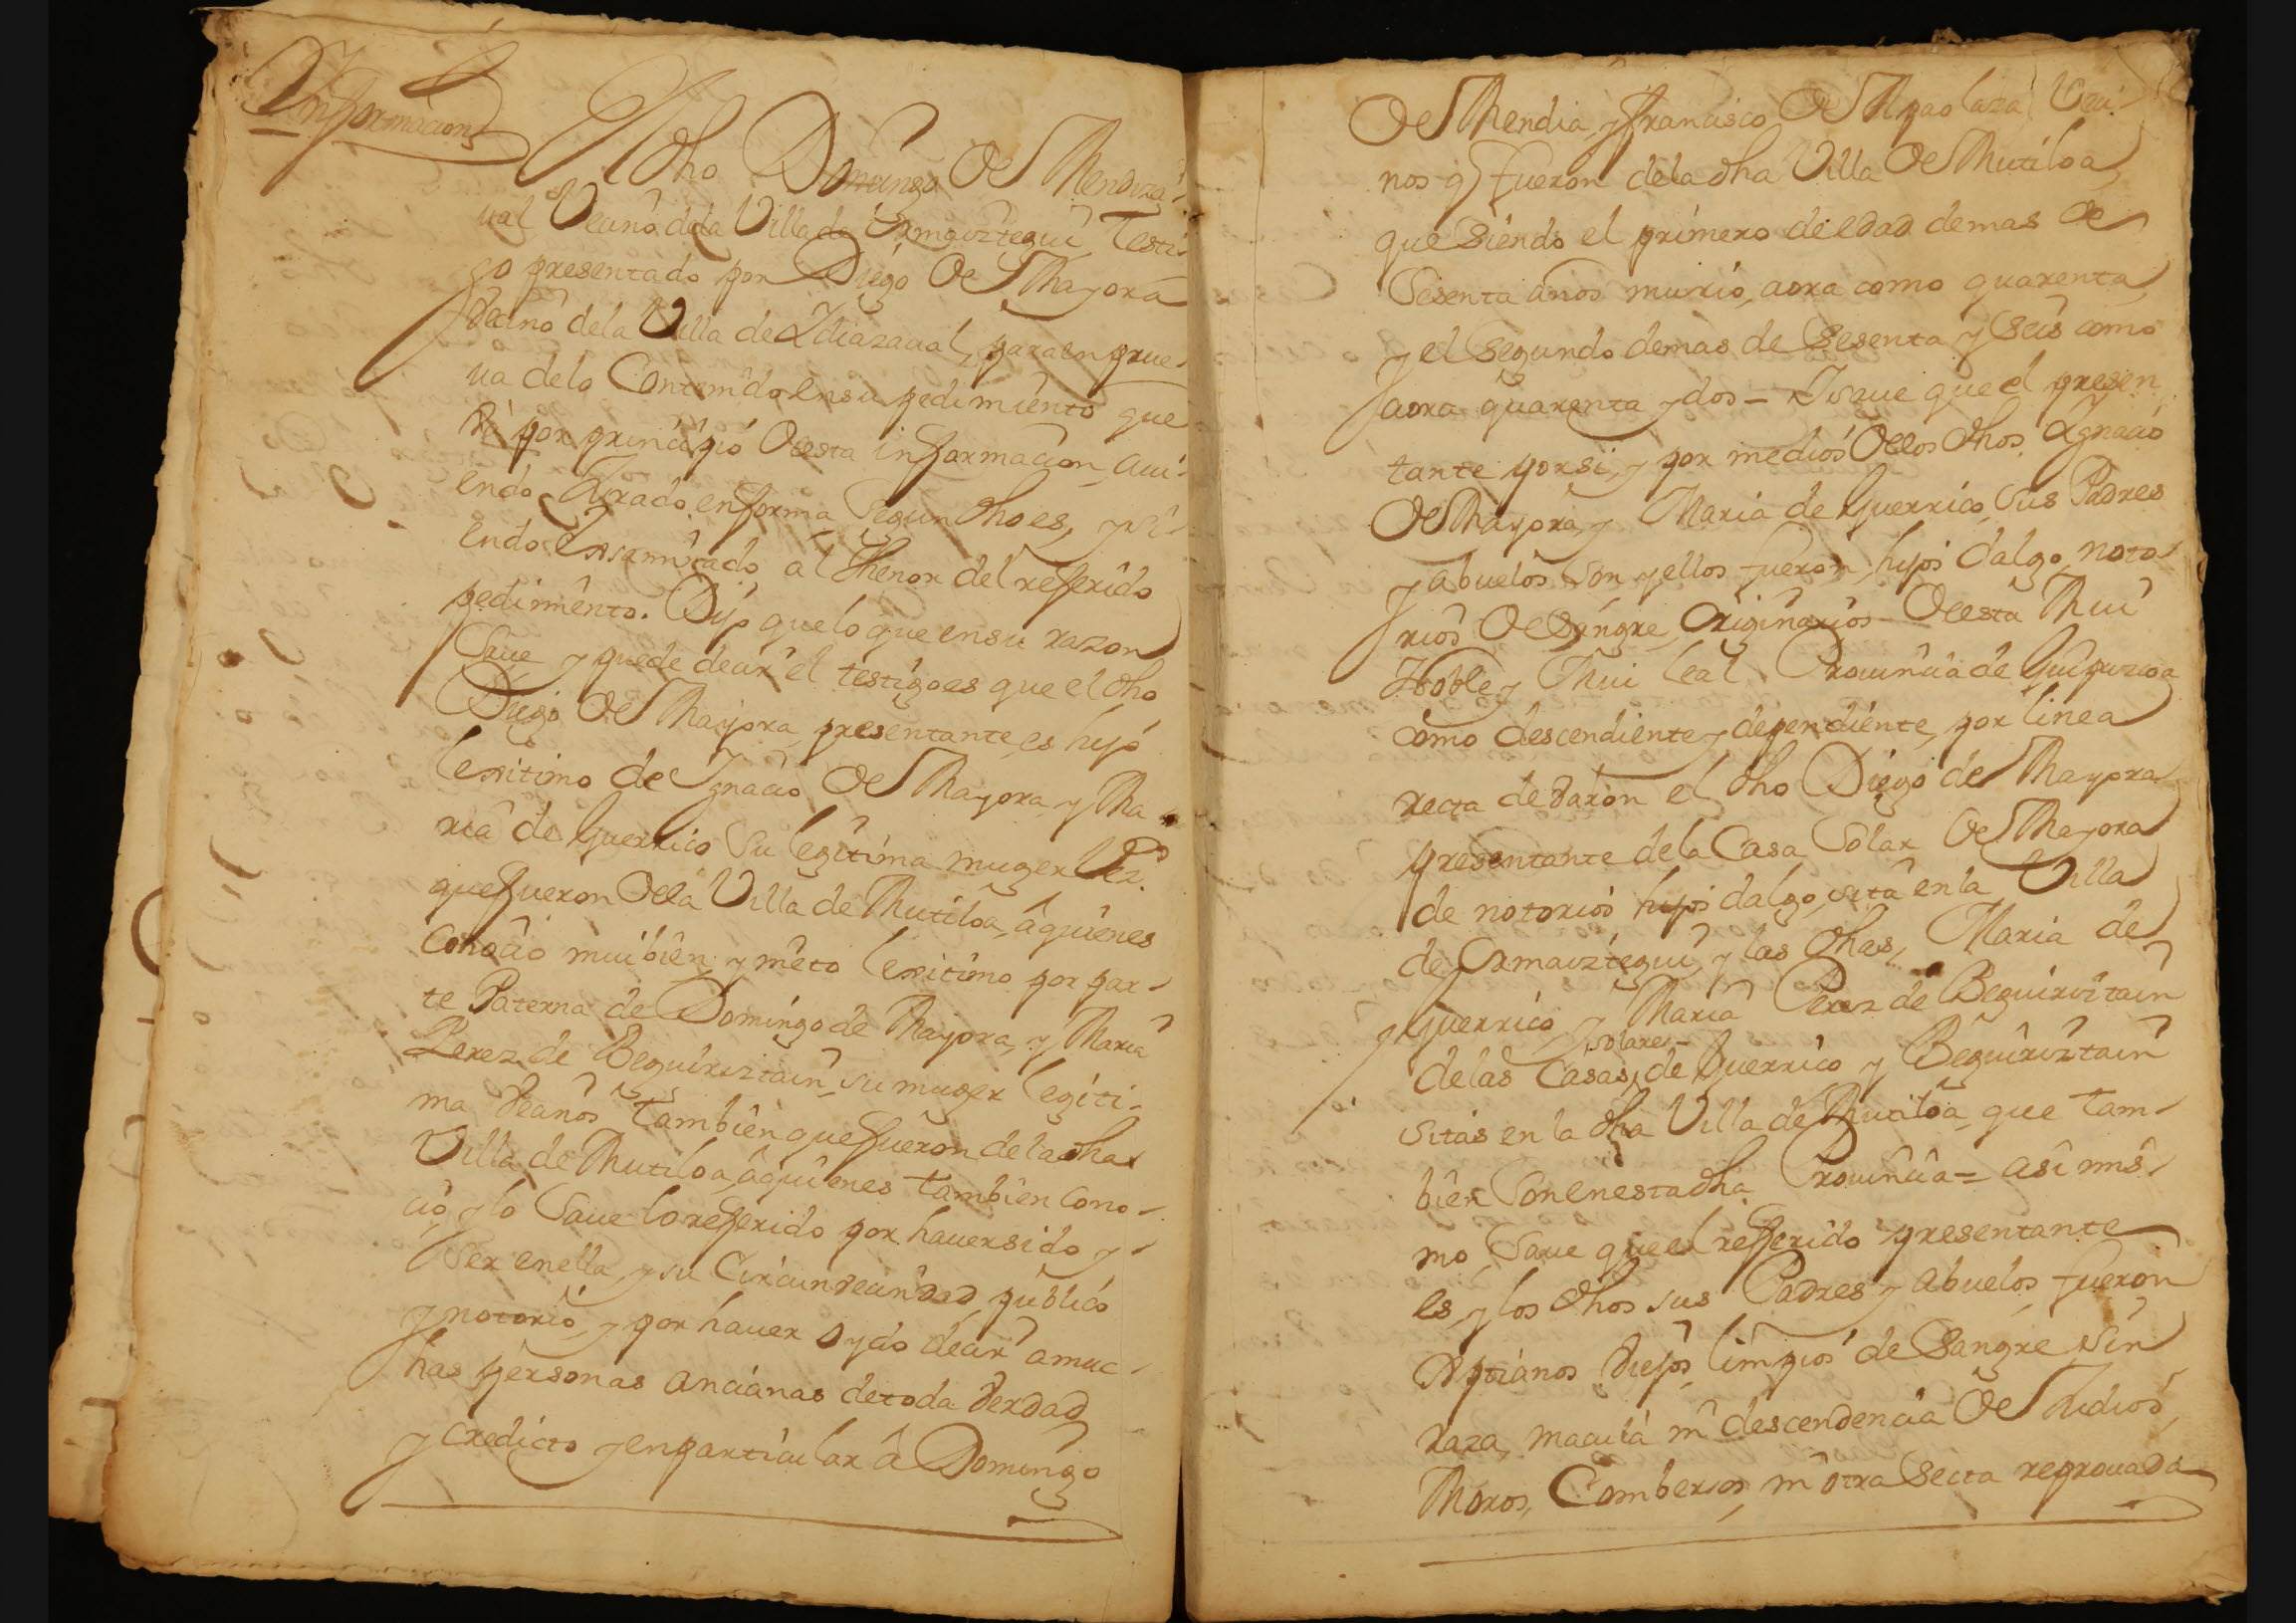 Informacion
El dho Domingo De Mendiza-
ual Vecino dela Villa de Ormaiztegui testi-
go presentado por Diego De Mayora
Vecino dela Villa de Ydiazaual, para en prue-
ua delo Contenido en su pedimiento que
Va por principio Desta informacion, aui-
endo Jurado en forma Segun dho es, y si-
endo Exsaminado al thenor del refferido
pedimiento. Dijo que lo que en su razon
Saue y puede decir el testigo es que el dho
Diego De Mayora presentante, es hijo
lexitimo de Ignacio De Mayora y Ma-
ria de Guerrico Su legitima muger Vez.os
que fueron Dela Villa de Mutiloa, â quienes
Conocio mui bien y nieto lexitimo por par-
te Paterna de Domingo de Mayora, y Maria
Perez de Beguiriztain su muger legiti-
ma Vecinos tambien que fueron de la dha
Villa de Mutiloa âquienes tambien Cono-
cio y lo Saue lo refferido por hauer sido y
Ser en ella, y su Circunvecindad publico
y notorio, y por hauer oydo decir a muc-
has personas ancianas de toda Verdad
y credicto y en particular â Domingo
De Mendia, y francisco De Apaolaza Veci-
nos q fueron dela dha Villa De Mutiloa,
que Siendo el primero de edad demas de
Sesenta años murio, aora como quarenta,
y el Segundo demas de Sesenta y Seis como
aora quarenta y dos = Y saue que el presen
tante por si, y por medios Delos dhos Ygnacio
De Mayora, y Maria de Guerrico, Sus Padres
y abuelos Son y ellos fueron, hijos dalgo, noto-
rios De Sangre, Originarios Desta Mui
Noble y Mui leal Prouincia de Guipuzcoa
como descendiente y dependiente, por linea
recta de Varon el dho Diego de Mayora
presentante dela Casa Solar De Mayora
de notorios hijos dalgo, sita en la Villa
de Ormaiztegui, y las dhas, Maria de
Guerrico, y Maria Perez de Beguiriztain
solares
delas Casas de Guerrico y Beguiriztain
Sitas en la dha Villa de Mutiloa, que tam-
bien Son en esta dha Prouincia = asi mis-
mo, Saue que el refferido presentante
es, y los dhos sus Padres y abuelos fueron
Xptianos Viejos, limpios de Sangre Sin
Raza, macula ni descendencia De Judios,
Moros, Combersos, ni otra Secta reprouada